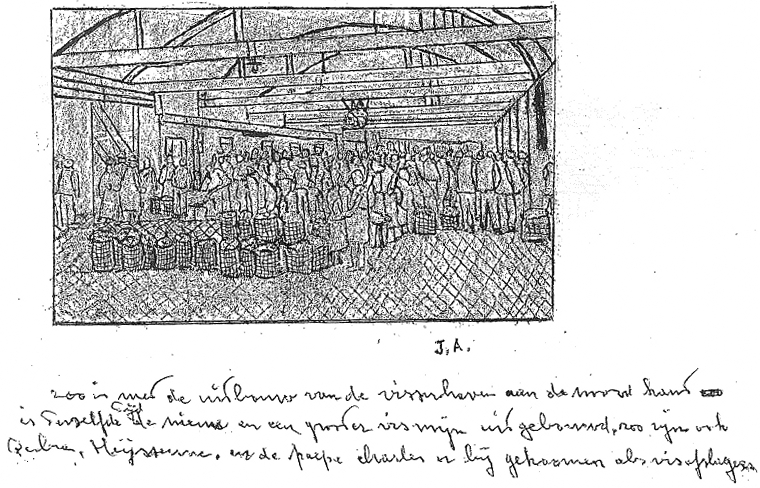 J.A.
zoo is med de uitbouw van de visserhaven aan de noord kand
is deselfde tijd de nieuwe en een groter vismijn uitgebouwd, zoo zijn ook
en de paepe charles er bij gekoomen als visafslagers